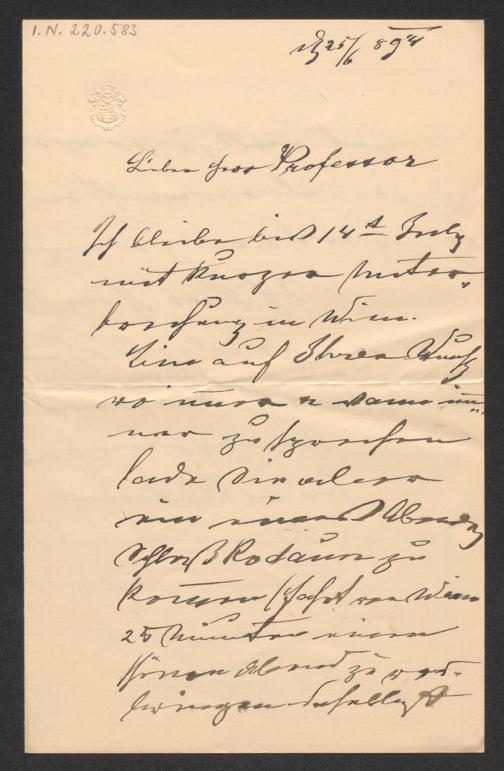 I.N. 220.583
25/6 894
Lieber Herr Professor
Ich bleibe bis 14t July
mit kurzer Unter-
brechung in Wien.
Um auf Ihren Wunsch
zu sprechen
lade Sie
Abends
Schloß Rodaun zu
kommen (Fahrt von Wien
25 Minuten einen
schönen Abend zu ver-
bringen daselbst